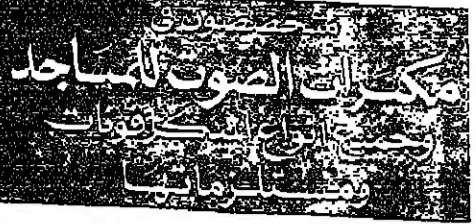 متخصصون في
مكبرات الصوت للمساجد
وجميع انواع الميكرفونات
ومستلزماتها